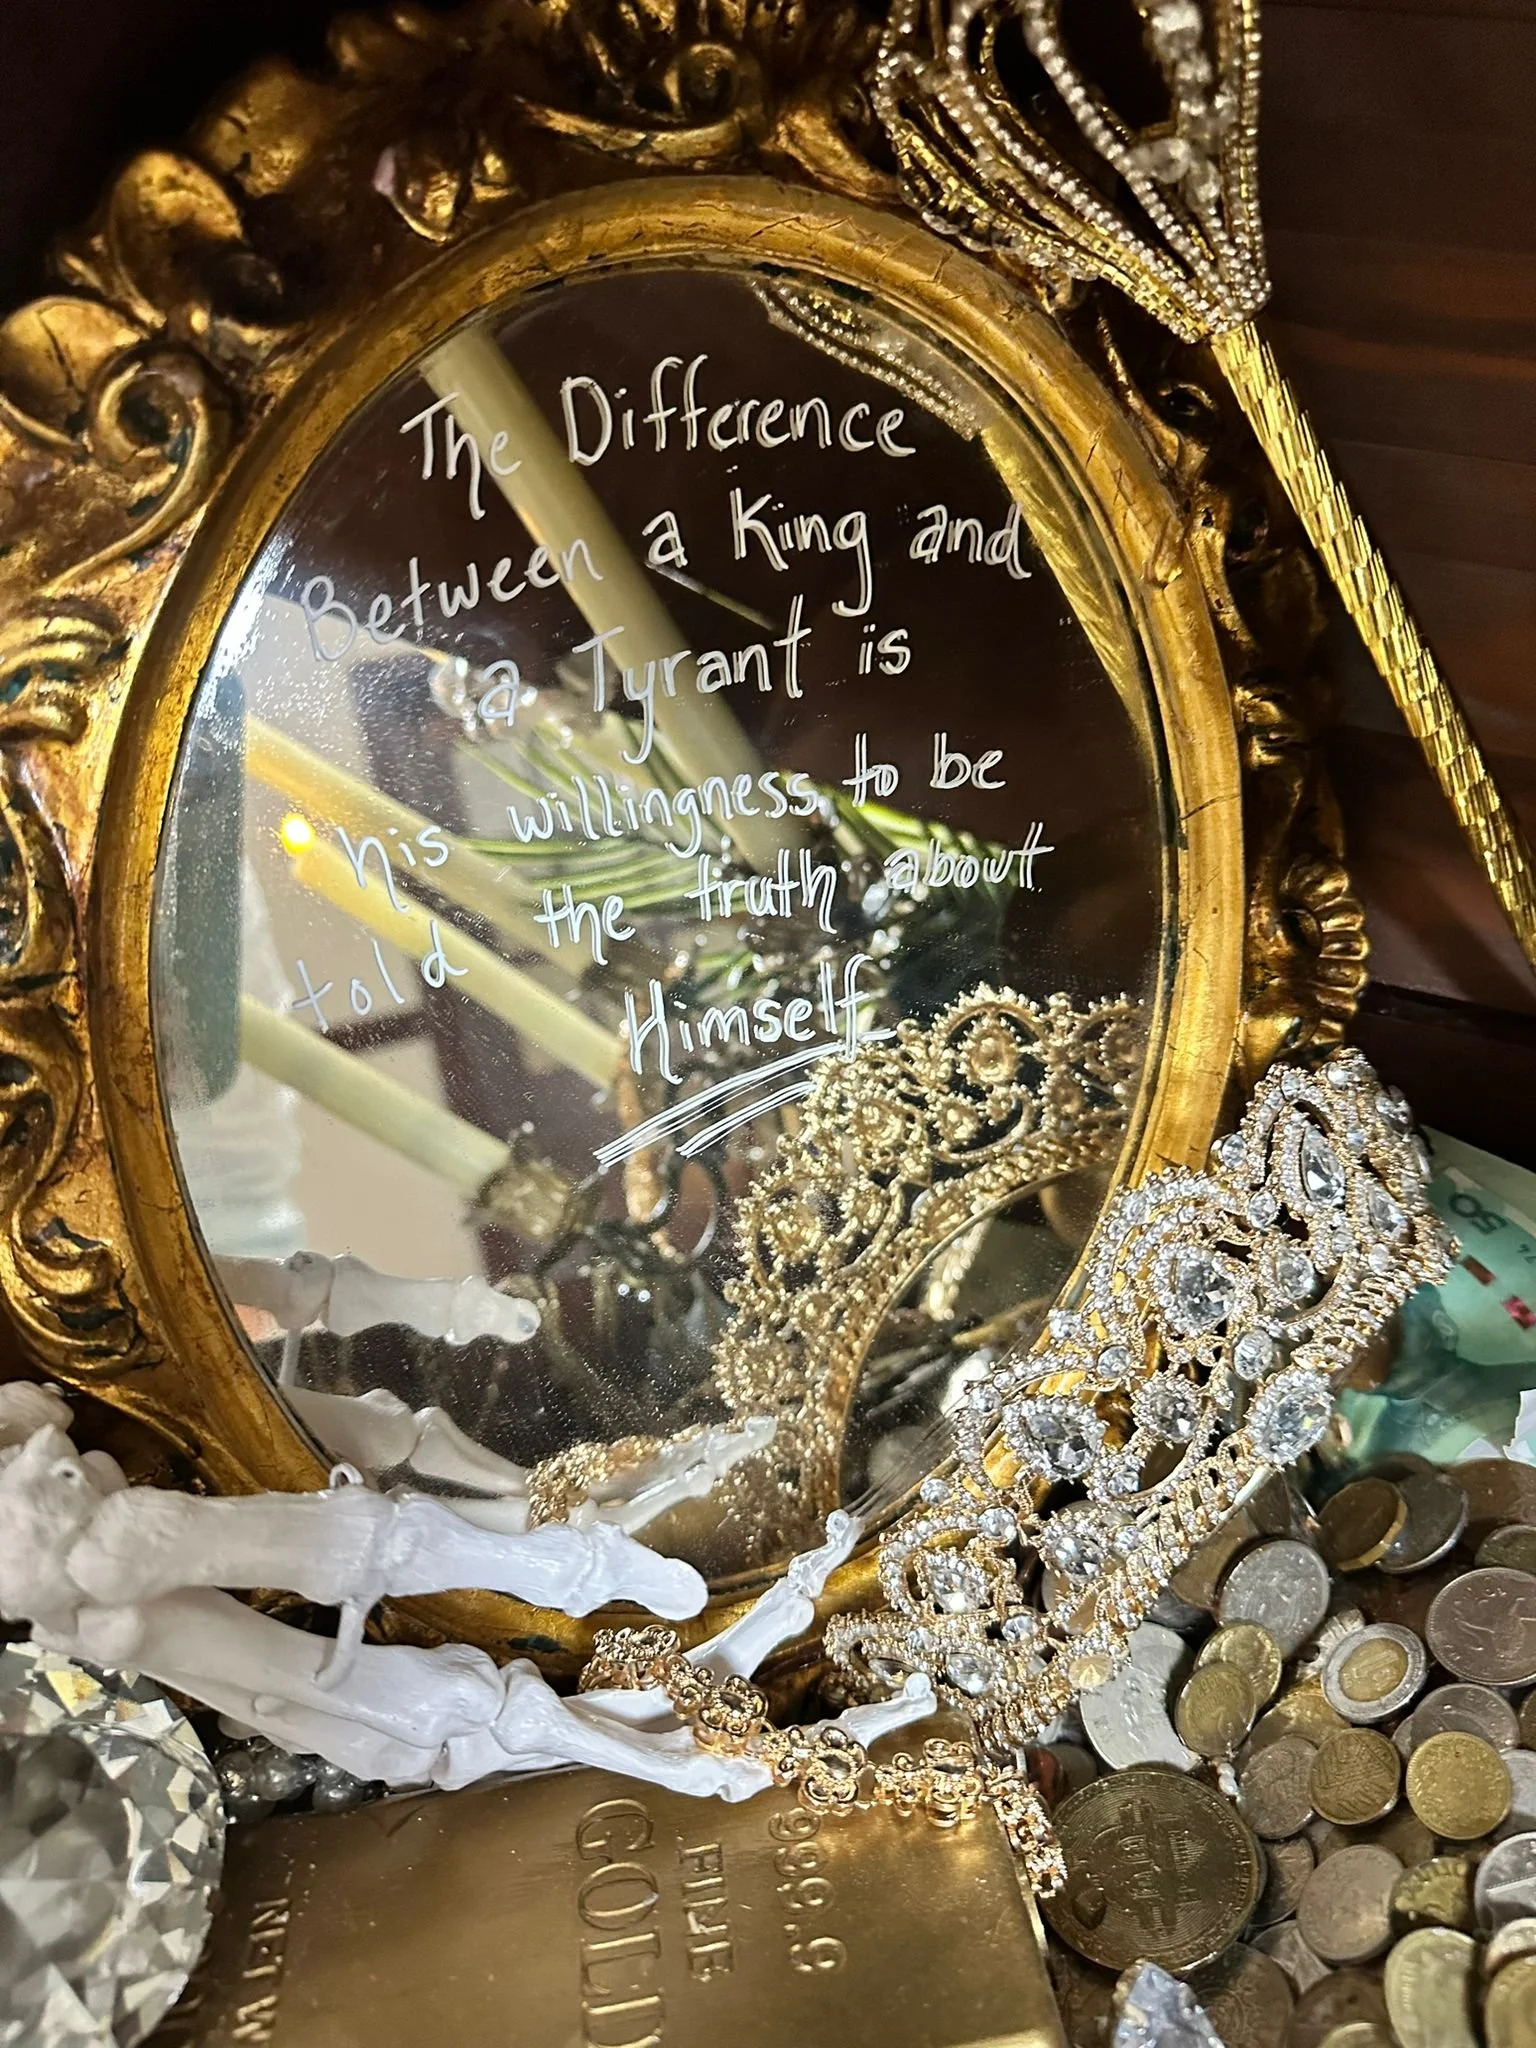 The Difference
Between a King and
a Tyrant is
his willingness to be
told the truth about
Himself
50
999.9
FINE
GOLD